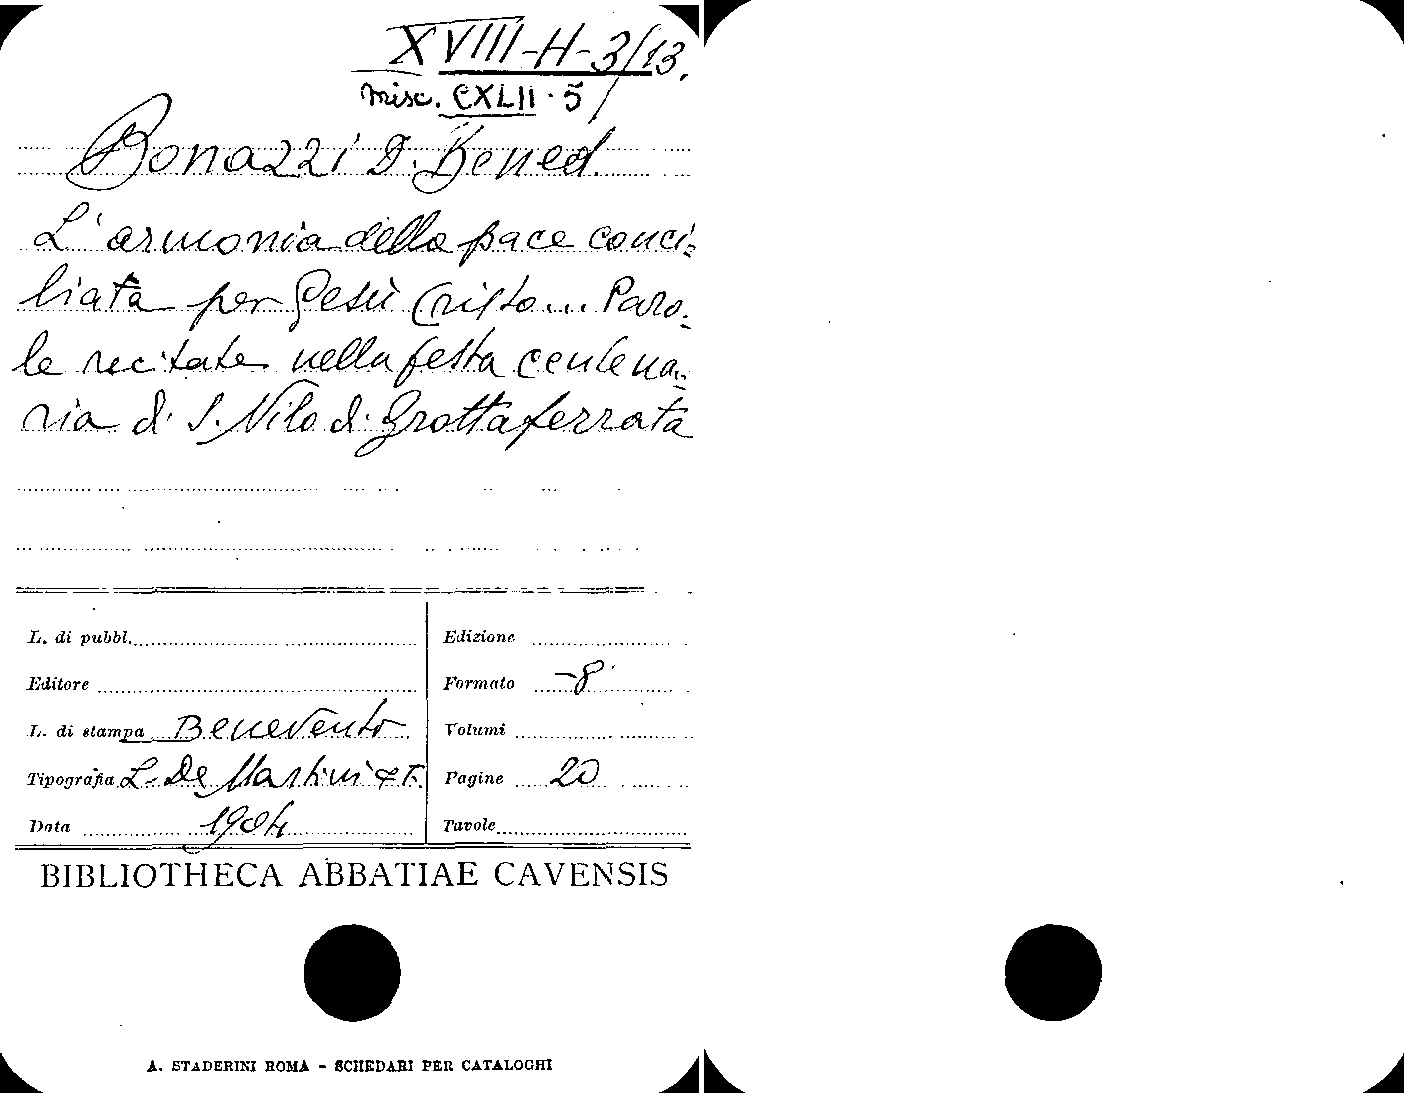 XVIII-H-3/13.
Misc. CXLII·5
Bonazzi D. Bened.
L'armonia della pace conci=
liata per Gesù Cristo... Paro=
le recitate nella festa centena=
ria di S. Nilo di Grottaferrata
L. di pubbl.
Edizione
Editore
Formato -8°
L. di stampa Benevento
Volumi
Tipografia L. De Martini & F.
Pagine 20
Data 1904
Tavole
BIBLIOTHECA ABBATIAE CAVENSIS
A. STADERINI ROMA - SCHEDARI PER CATALOGHI